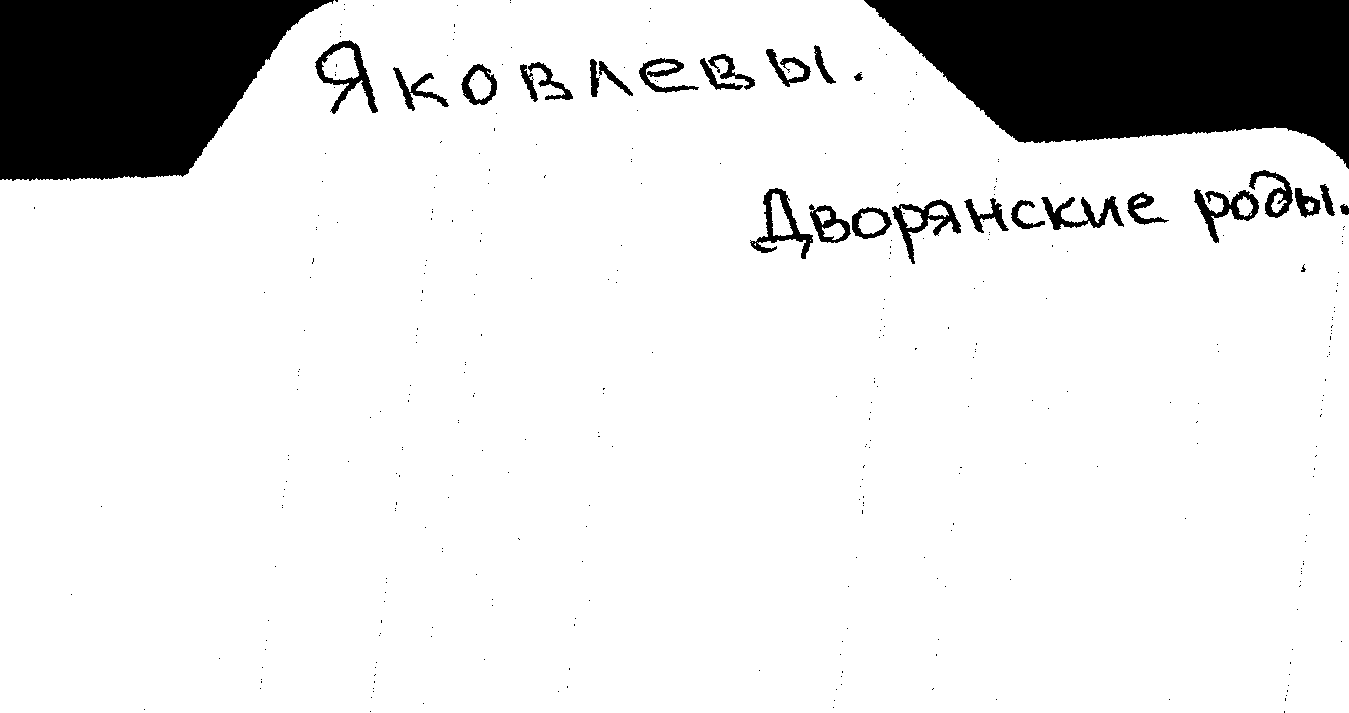 Яковлевы.
Дворянские роды.